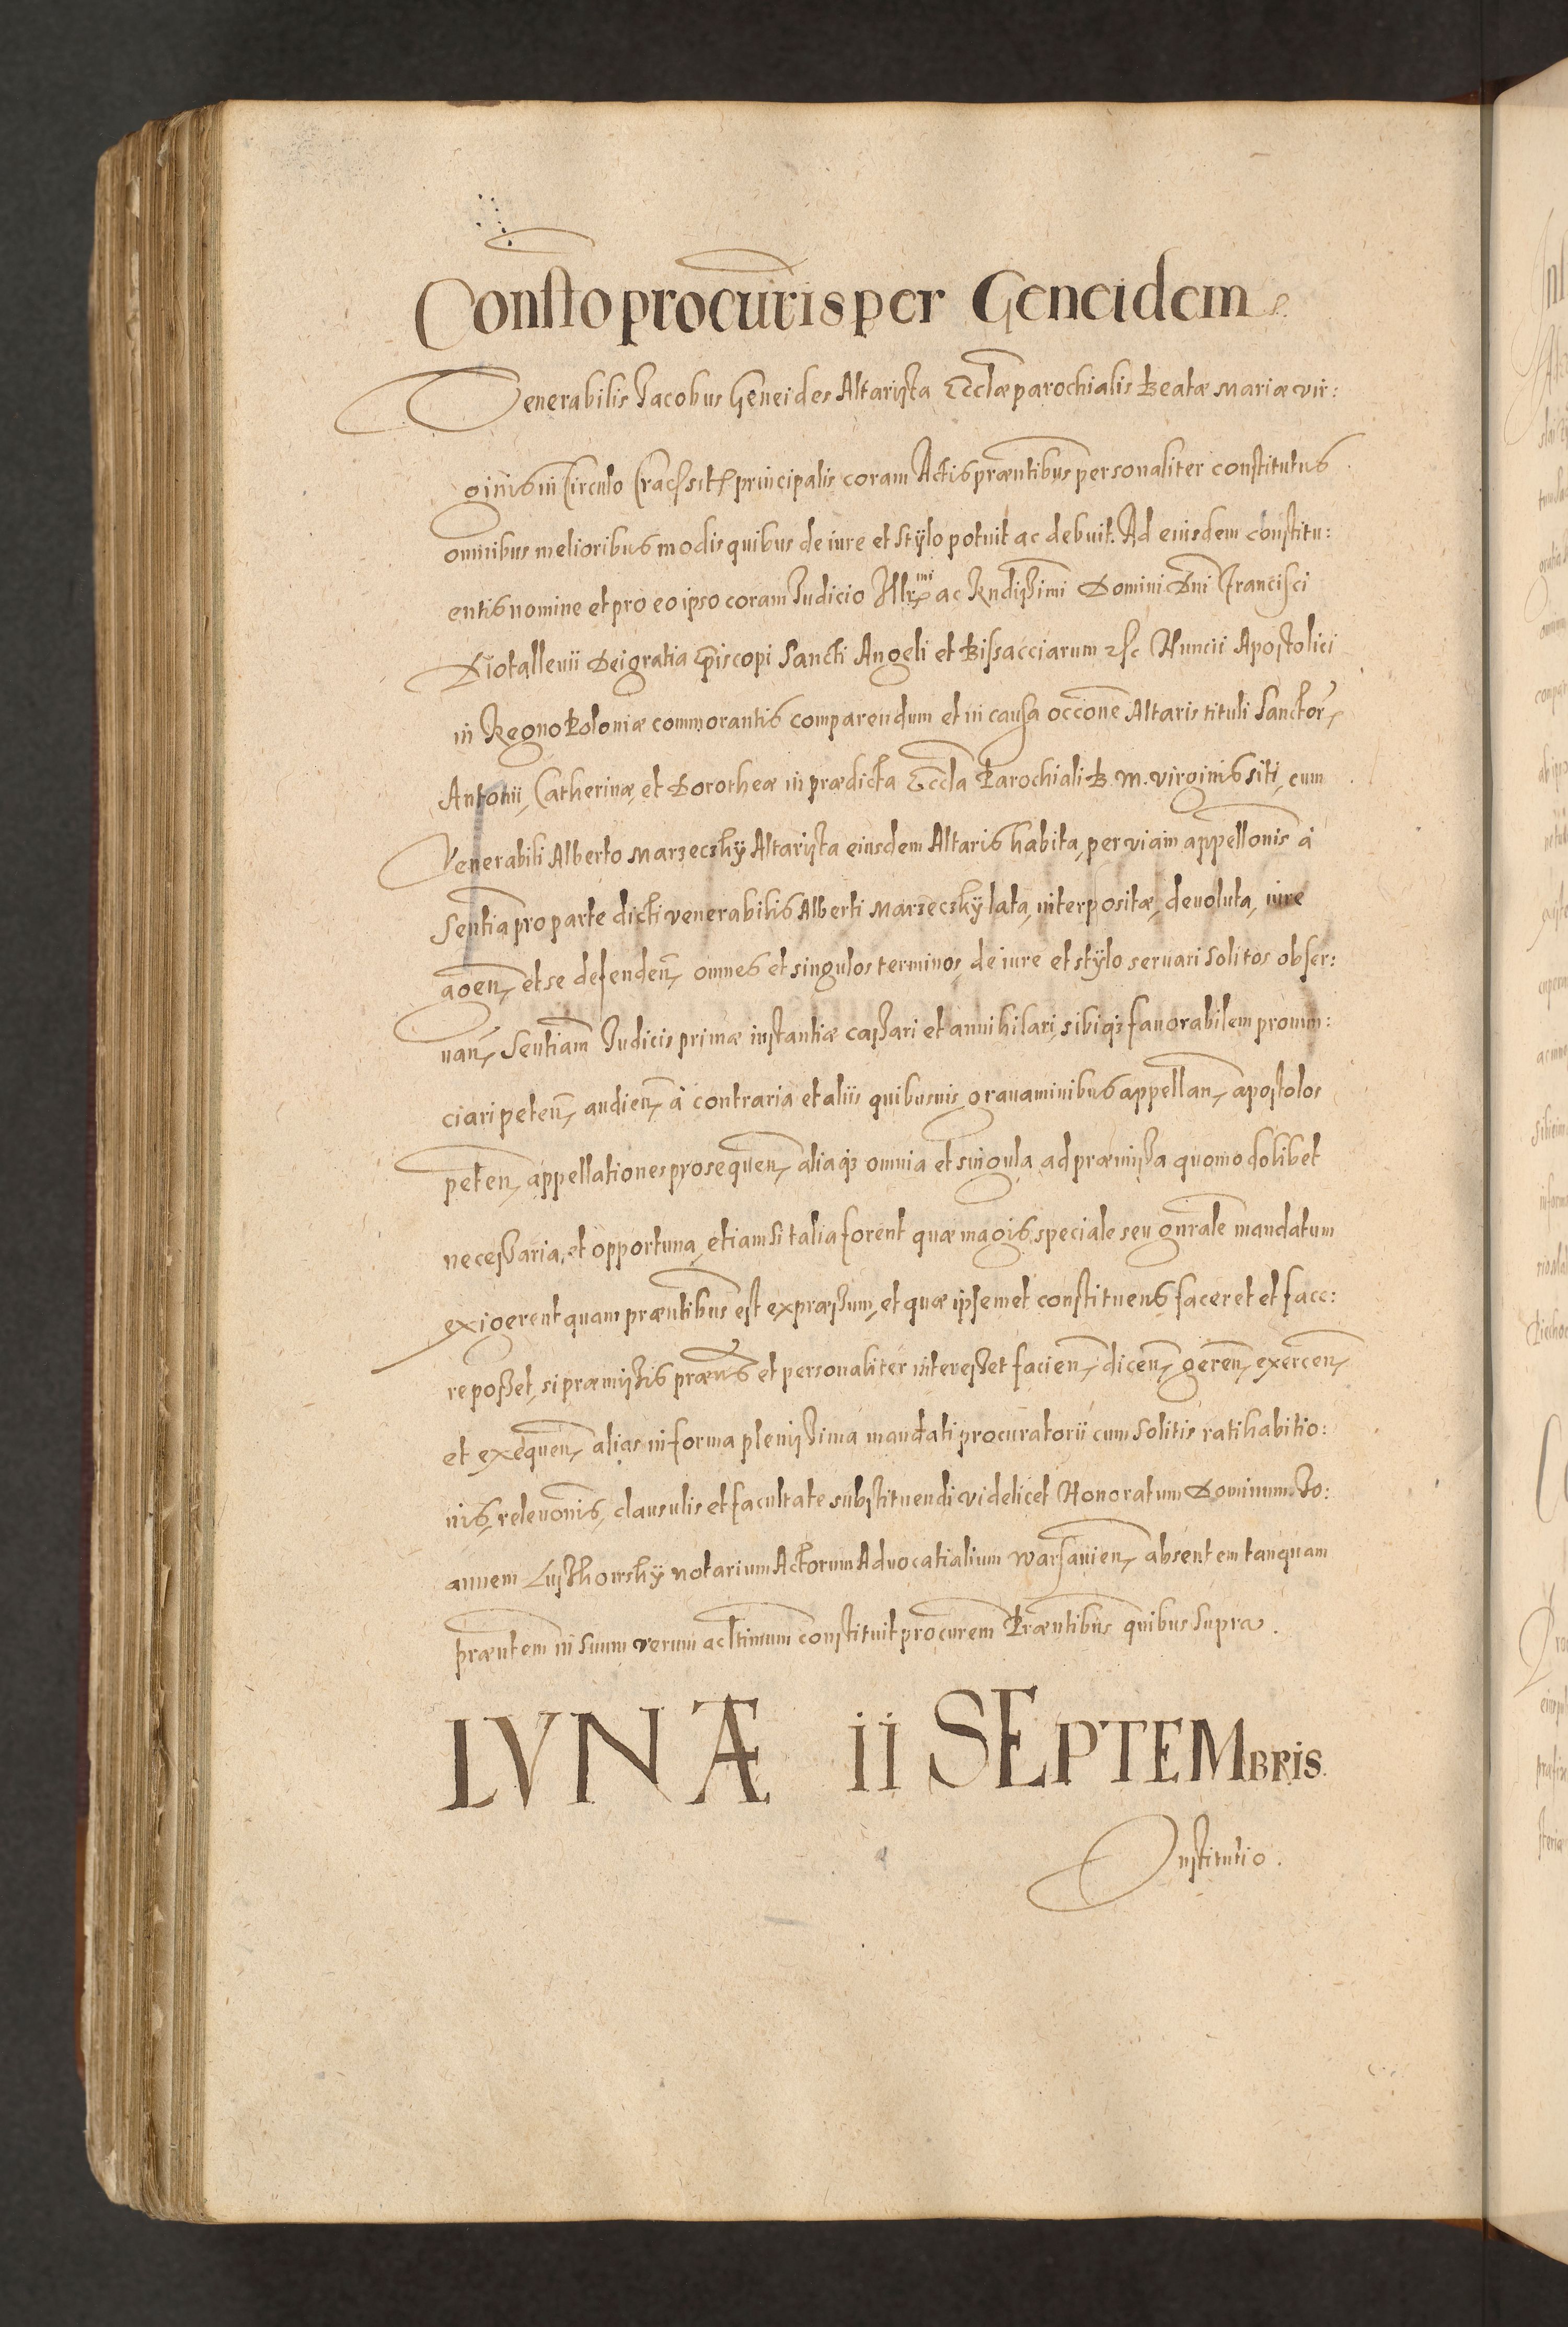 Constõ procuris per Geneidem
Venerabilis Jacobus Geneides Altarista Ecclæ parochialis Beatæ Mariæ vir:
ginis in Circulo Crac: sitæ principalis coram Actis præntibus personaliter constitutus
omnibus melioribus modis quibus de iure et stÿlo potuit ac debuit. Ad eiusdem constitu:
entis nomine et pro eo ipso coram Judicio Illr̃mi ac Rndissimi Domini Dni Francisci
Diotallevii Dei gratia Episcopi Sancti Angeli et Bissacciarum &c Nuncii Apostolici
in Regno Poloniæ commorantis comparendum et in causa occõne Altaris tituli Sanctor̃
Antonii, Catherinæ, et Dorotheæ in prædicta Eccla Parochiali B. M. virginis siti, cum
Venerabili Alberto Marzeczkÿ Altarista eiusdem Altaris habita, per viam appellõnis à
Sentia pro parte dicti venerabilis Alberti Marzeczkÿ lata, interpositæ, devoluta, iure
agen̄, et se defenden̄, omnes et singulos terminos, de iure et stÿlo servari solitos obser:
uan̄, Sentiam Judicis primæ instantiæ cassari et annihilari, sibiq3 favorabilem pronun:
ciari peten̄, audien̄, à contraria et aliis quibusvis gravaminibus appellan̄, apostolos
peten̄, appellationes prosequen̄, aliaq3 omnia et singula ad præmissa quomodolibet
necessaria, et opportuna, etiamsi talia forent quæ magis speciale seu gnrale mandatum
exigerent quam præntibus est expræssum, et quæ ipsemet constituens faceret et face:
re posset, si præmissis præns et personaliter interesset facien̄, dicen̄, geren̄, exercen̄,
et exequen̄, alias in forma plenissima mandati procuratorii cum solitis ratihabitio:
nis, relevõnis, clausulis et facultate substituendi videlicet Honoratum Dominum Jo:
annem Lusthowskÿ notarium Actorum Advocatialium Warsavien̄, absentem tanquam
præntem in suum verum ac ltimum constituit procurem Præntibus quibus supra.
LVNÆ 11 SEPTEMBRIS
Institutio.